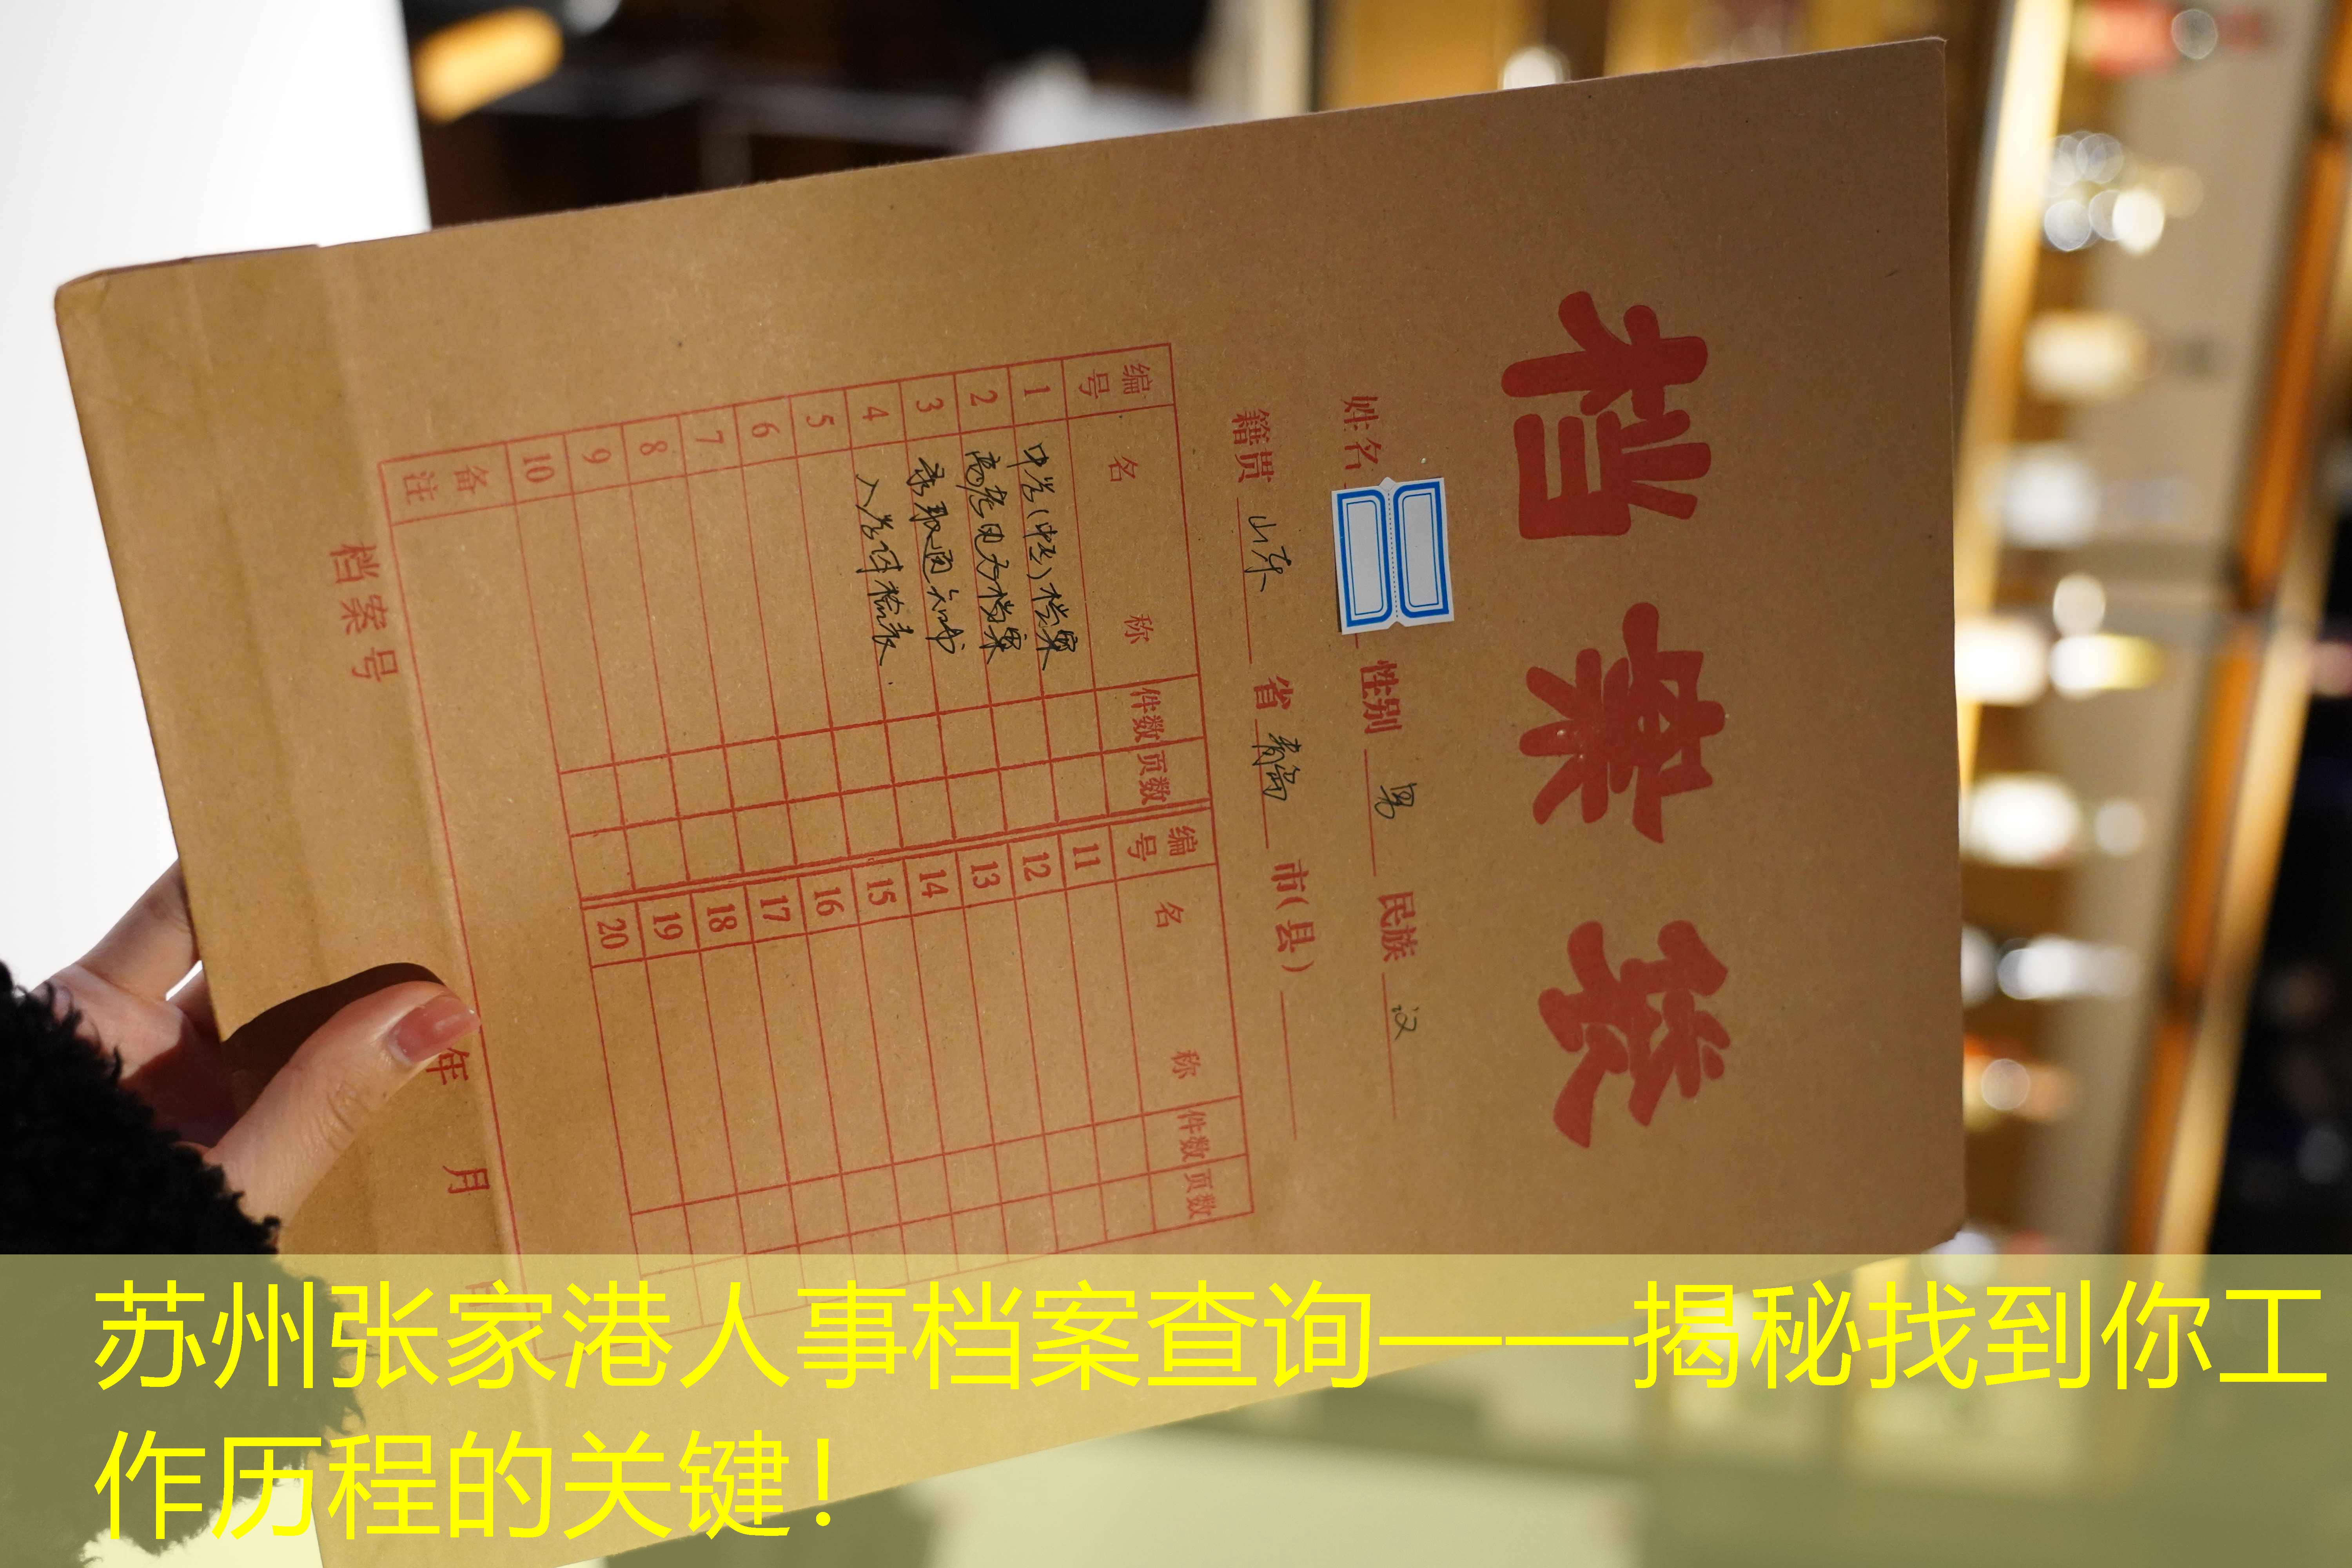 档案袋
姓名 性别 男 民族 汉
籍贯 山东 省 青岛 市(县)
编号 名称 件数 页数 编号 名称 件数 页数
1 中学(中专)档案 11
2 高考电子档案 12
3 录取通知书 13
4 入学体检表 14
5 15
6 16
7 17
8 18
9 19
10 20
备注
档案号 年 月 日
苏州张家港人事档案查询——揭秘找到你工
作历程的关键！